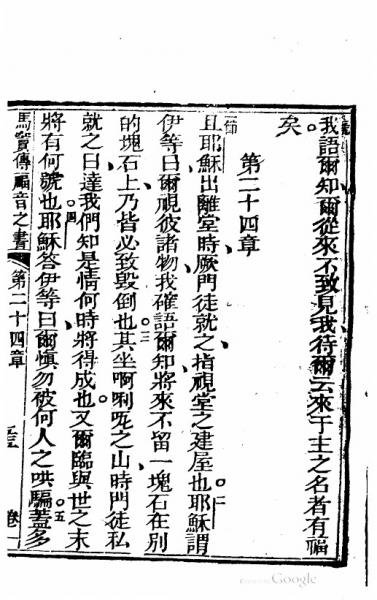 我語爾知爾從來不致見我待爾云來于主之名者有福
矣。
第二十四章
一節
且耶穌出離堂時厥門徒就之指視堂之建屋也。二耶穌謂
伊等曰爾視彼諸物我確語爾知將來不留一塊石在別
的塊石上乃皆必致毀倒也。三其坐啊唎𠰻之山時門徒私
就之曰達我們知是情何時將得成也又爾臨與世之末
將有何號也。四耶穌答伊等曰爾慎勿被何人之哄騙。五蓋多
馬竇傳福音之書
第二十四章
卷一
Google